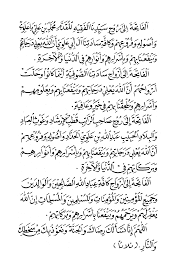 الفاتحة إلى روح سيدنا الفقيه المقدم محمد بن علي باعلوي
وأصولهم وفروعهم وكافة سادتنا آل أبي علوي أن الله يعلي درجاتهم
وينفعنا بهم وبأسرارهم وأنوارهم في الدنيا والآخرة .
الفاتحة إلى أرواح سادتنا الصوفية أينما كانوا وحلت
أرواحهم أن الله يعلي درجاتهم وينفعنا بهم وبعلومهم
وبأسرارهم ويلحقنا بهم في خير وعافية .
الفاتحة إلى روح صاحب الراتب قطب الإرشاد وغوث العباد
والبلاد الحبيب عبد الله بن علوي الحداد وأصوله وفروعهم
أن الله يعلي درجاتهم وينفعنا بهم وأسرارهم وأنوارهم
وبركاتهم في الدنيا والآخرة .
الفاتحة إلى أرواح كافة عباد الله الصالحين والوالدين
وجميع المؤمنين والمؤمنات والمسلمين والمسلمات أن الله
يغفر لهم ويرحمهم وينفعنا بأسرارهم وبركاتهم .
اللهم إنا نسألك رضاك والجنة ونعوذ بك من سخطك
والنار . ( ثلاثا )